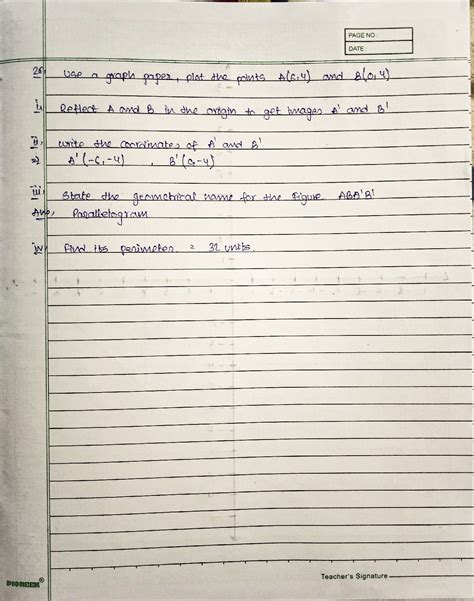 PAGE NO :
DATE :
26, Use a graph paper, plot the points A(6,4) and B(0,4)
i, Reflect A and B in the origin to get images A' and B'
ii, write the coordinates of A' and B'
=) A'(-6,-4) , B'(0,-4)
iii, State the geometrical name for the Figure ABA'B'
Ans, Parallelogram
iv, Find its perimeter = 32 units.
Teacher's Signature
PIONEER®